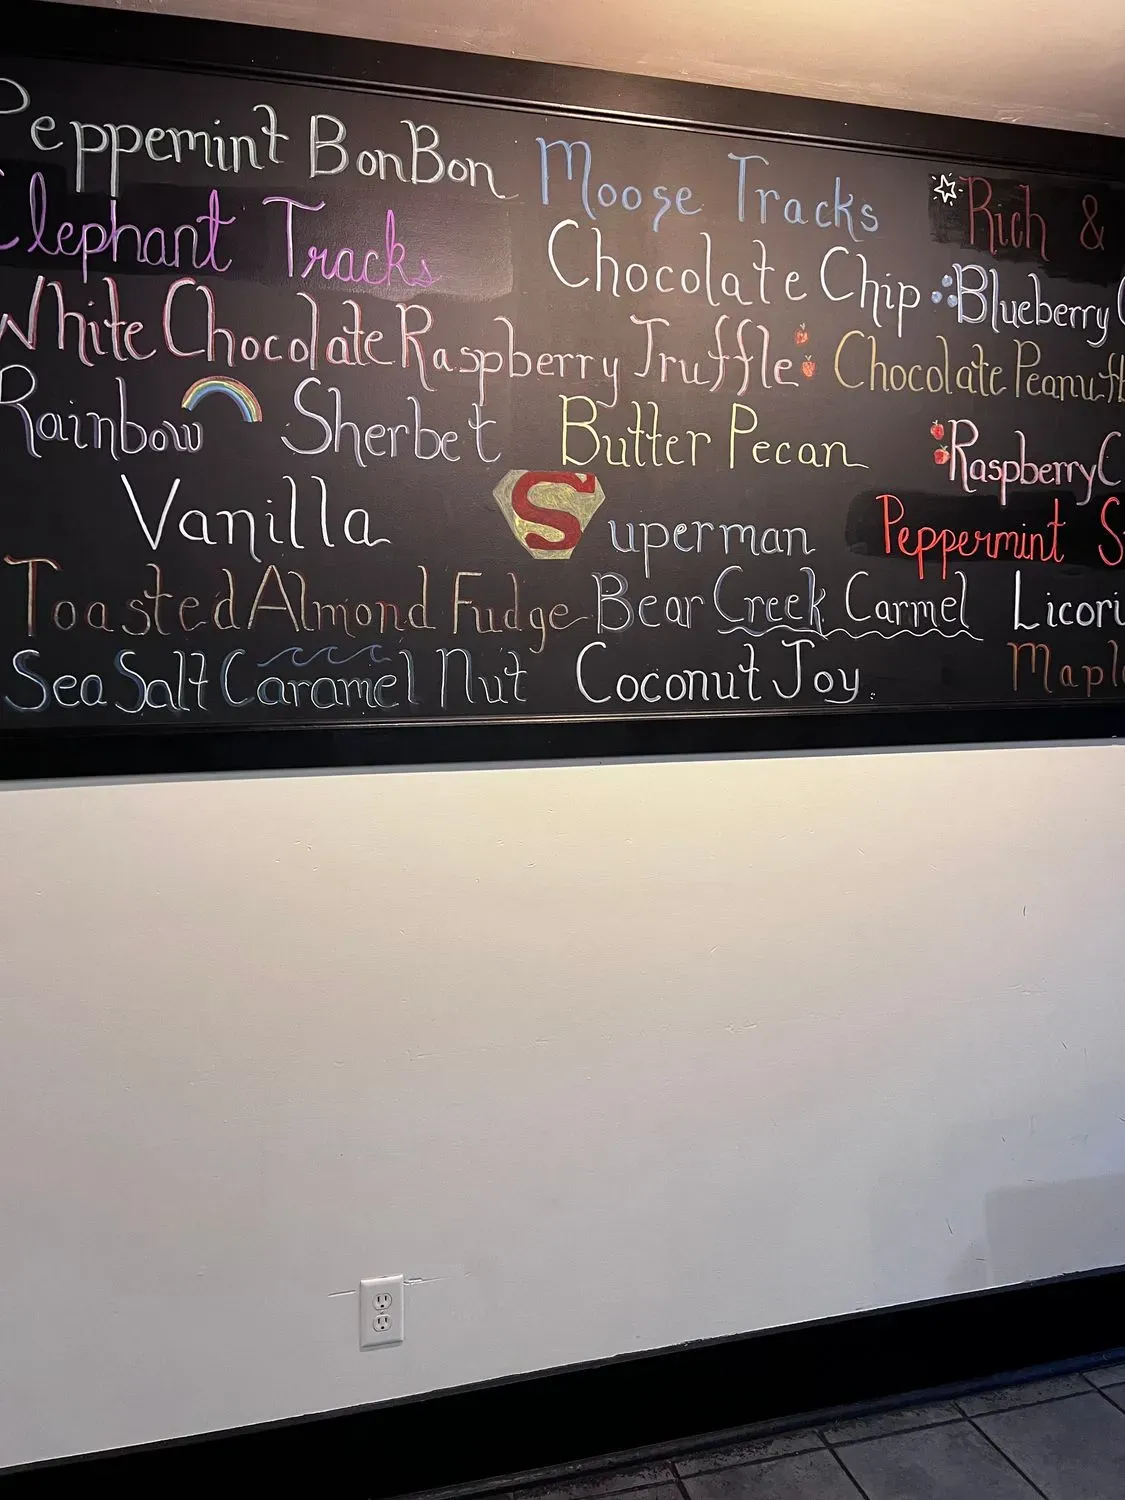 Peppemint BonBon Moose Tracks Rich &
Elephant Tracks Chocolate Chip Blueberry
White Chocolate Raspberry Truffle Chocolate Peanut
Rainbow Sherbet Butter Pecan Raspberry
Vanilla Superman Peppermint
Toasted Almond Fudge Bear Creek Carmel Licori
Sea Salt Caramel Nut Coconut Joy Maple